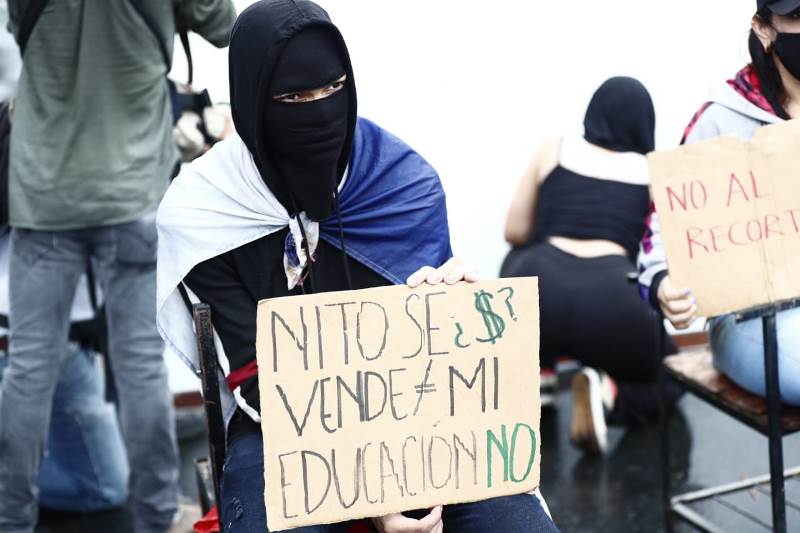 NITO SE ¿$?
VENDE ≠ MI
EDUCACIÓN NO
NO AL
RECORT